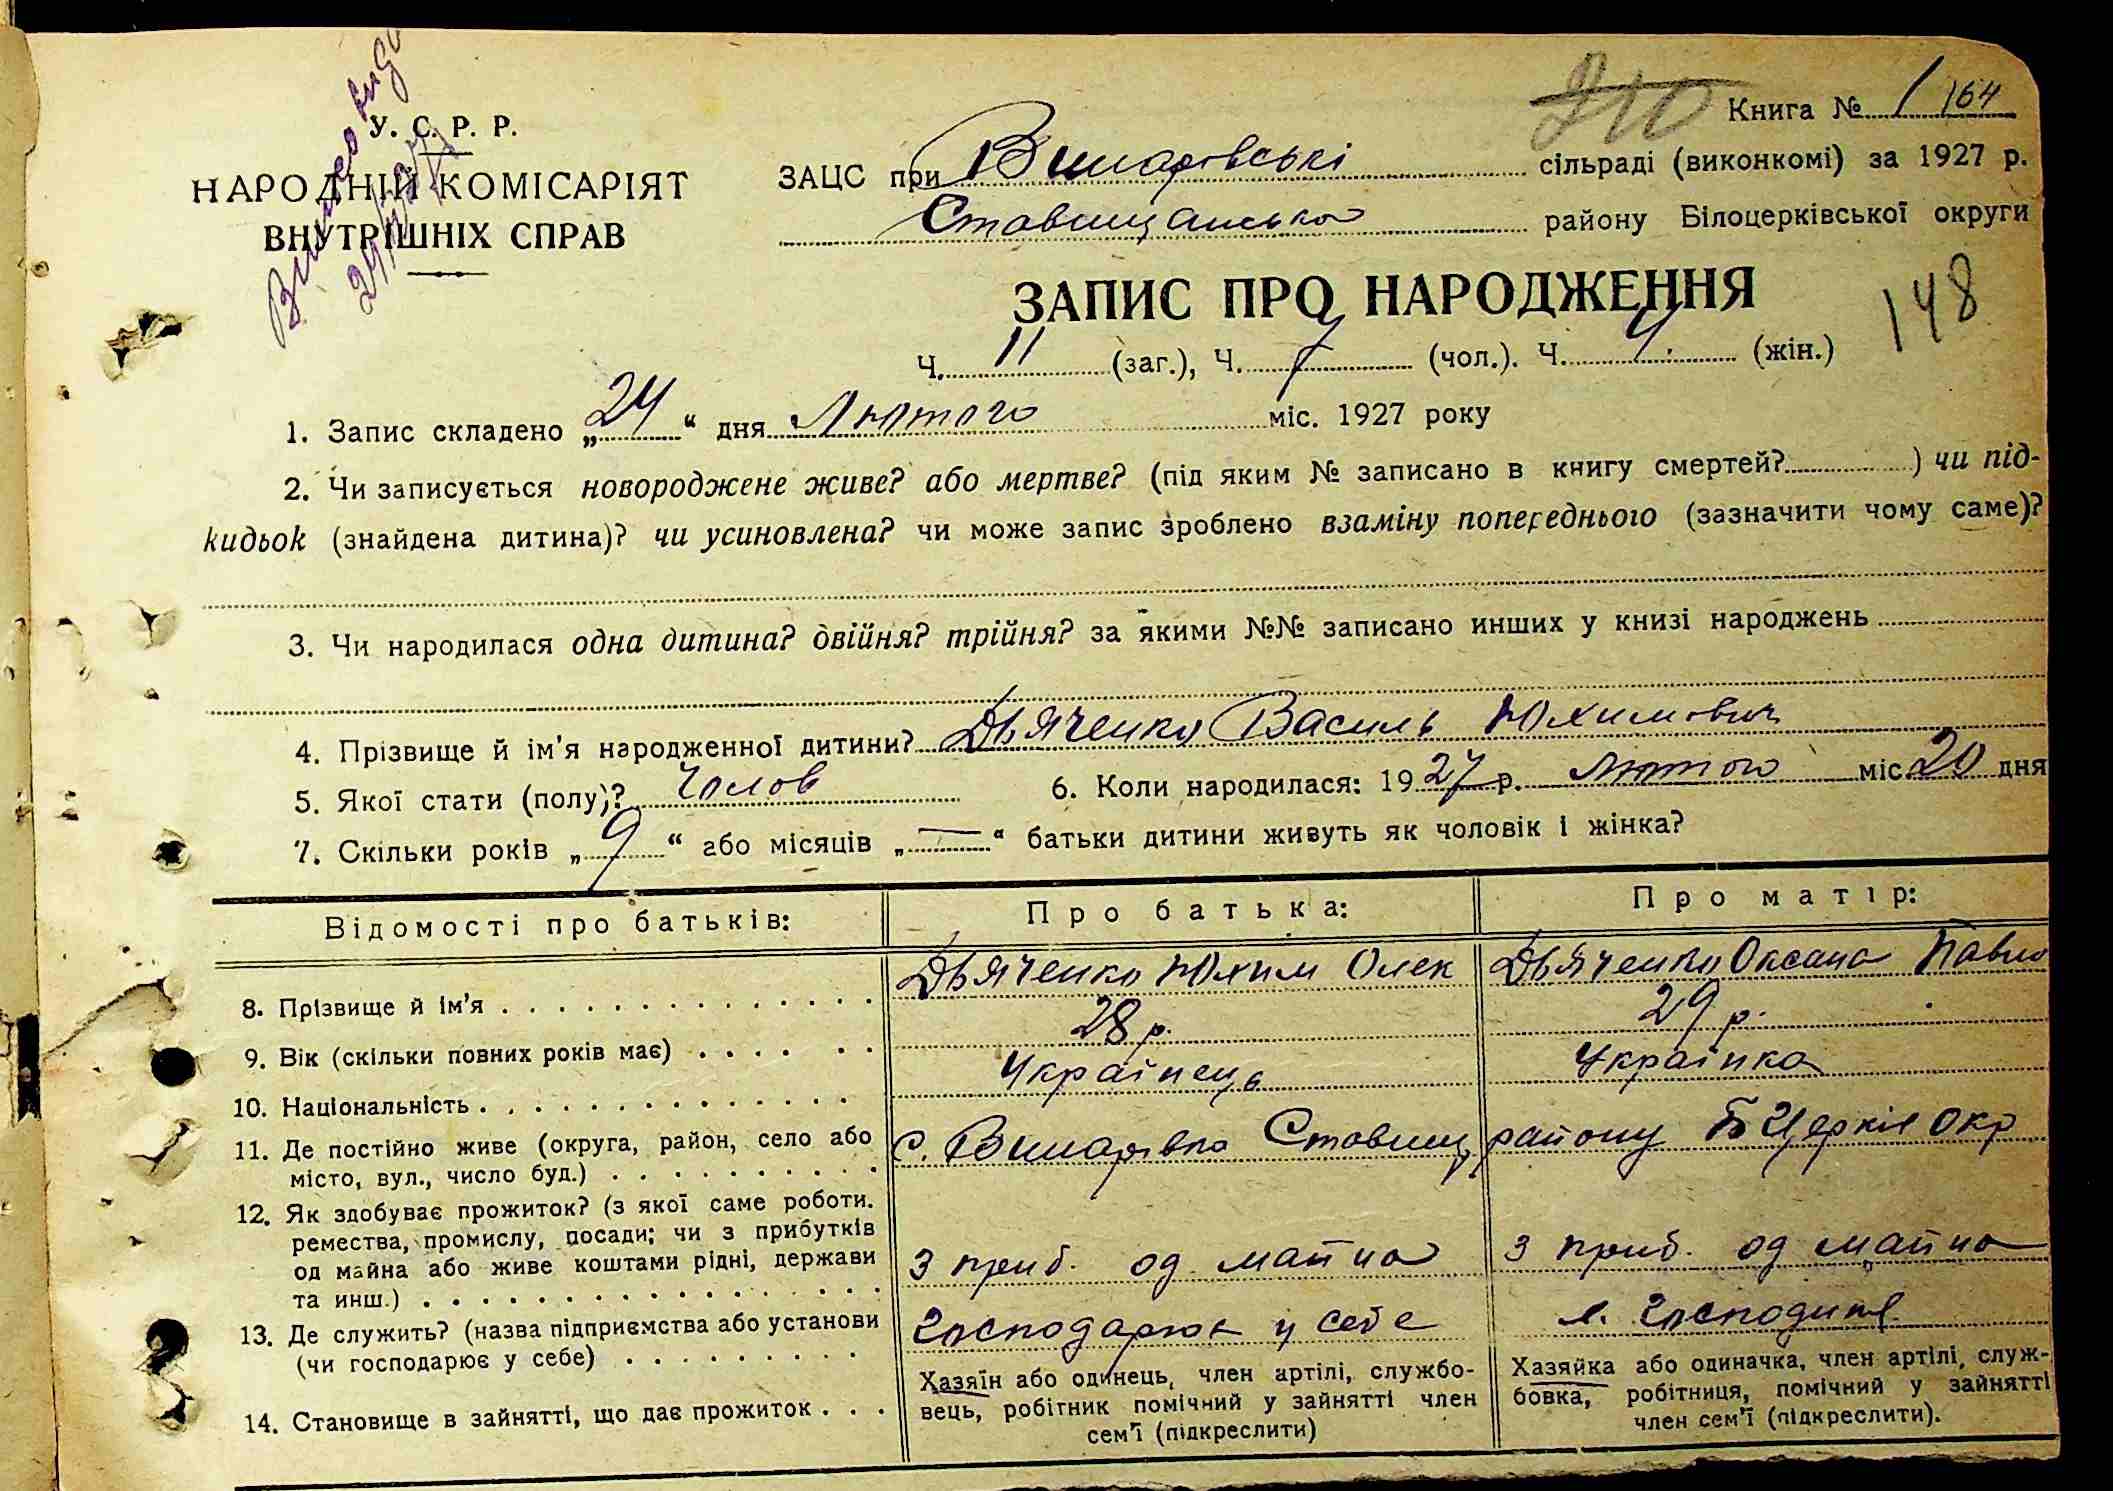 У. С. Р. Р.
НАРОДНІЙ КОМІСАРІЯТ
ВНУТРІШНІХ СПРАВ
210
Книга № 1 164
ЗАЦС при Вишарівські сільраді (виконкомі) за 1927 р.
Ставищанська району Білоцерківської округи
ЗАПИС ПРО НАРОДЖЕННЯ
148
Ч. 11 (заг.), Ч. 7 (чол.). Ч. 4. (жін.)
1. Запис складено „24“ дня Лютого міс. 1927 року
2. Чи записується новороджене живе? або мертве? (під яким № записано в книгу смертей? ) чи під-
кидьок (знайдена дитина)? чи усиновлена? чи може запис зроблено взаміну попереднього (зазначити чому саме)?
3. Чи народилася одна дитина? двійня? трійня? за якими №№ записано инших у книзі народжень
4. Прізвище й ім'я народженної дитини? Дьяченко Василь Юхимович
5. Якої стати (полу)? Чолов 6. Коли народилася: 1927 р. Лютого міс. 20 дня
7. Скільки років „9“ або місяців „—“ батьки дитини живуть як чоловік і жінка?
Відомості про батьків: Про батька: Про матір:
8. Прізвище й ім'я Дьяченко Юхим Олек Дьяченко Оксана Павло
9. Вік (скільки повних років має) 28 р. 29 р.
10. Національність Українець Українка
11. Де постійно живе (округа, район, село або
місто, вул., число буд.) с. Вишарівка Ставищ району Б Церків Окр
12. Як здобуває прожиток? (з якої саме роботи.
ремества, промислу, посади; чи з прибутків
од майна або живе коштами рідні, держави
та инш.) З приб. од майна З приб. од майна
13. Де служить? (назва підприємства або установи
(чи господарює у себе) Господарює у себе
14. Становище в зайнятті, що дає прожиток
Хазяїн або одинець, член артілі, службо-
вець, робітник помічний у зайнятті член
сем'ї (підкреслити)
Хазяйка або одиначка, член артілі, служ-
бовка, робітниця, помічний у зайнятті
член сем'ї (підкреслити).